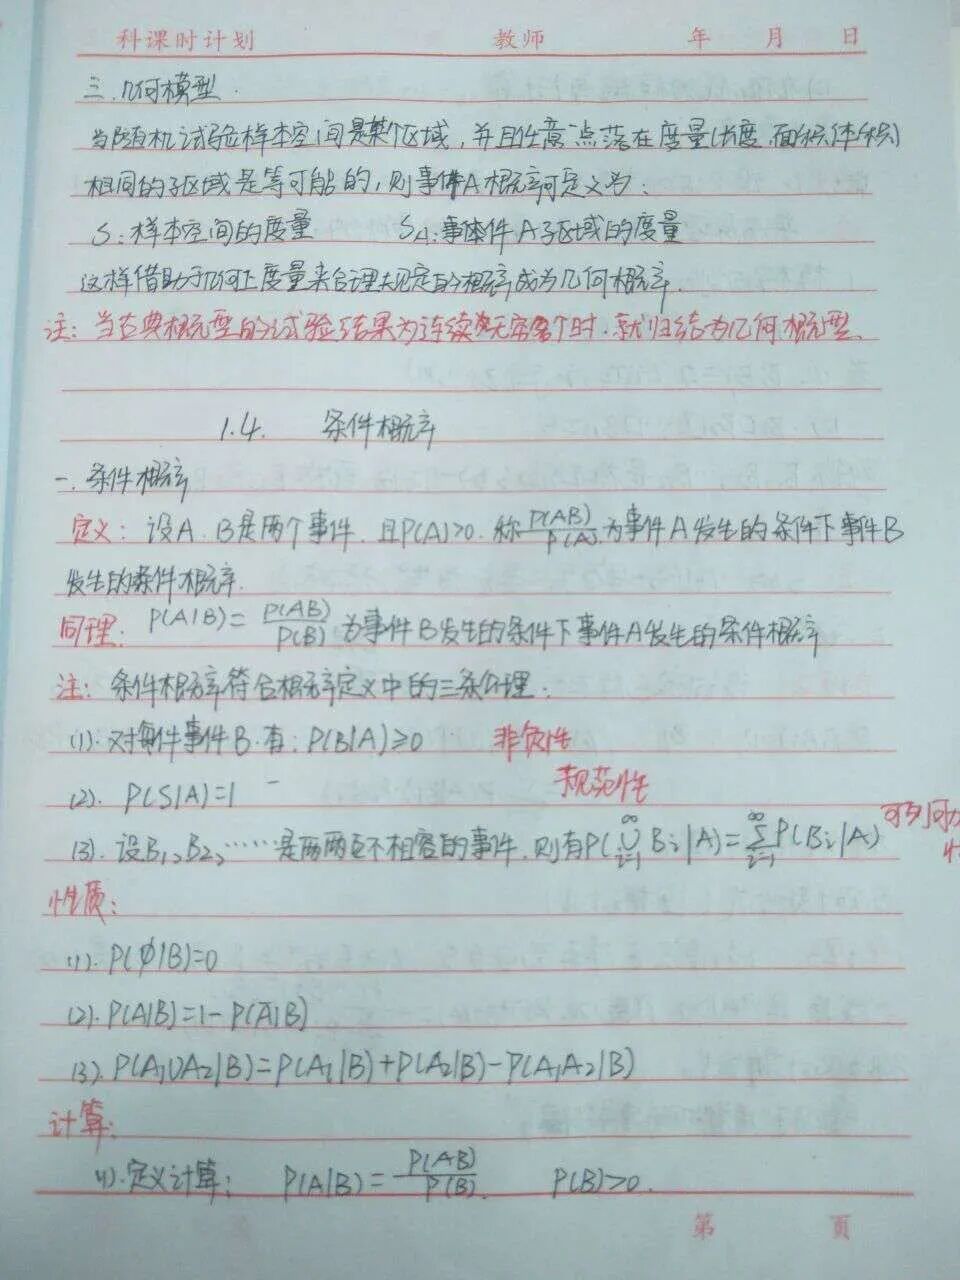 科课时计划 教师 年 月 日
三.几何模型.
当随机试验样本空间是某个区域,并且任意点落在度量(长度.面积.体积)
相同的子区域是等可能的,则事件A概率可定义为:
S:样本空间的度量 SA:事件A子区域的度量
这样借助于几何上度量来合理规定的概率成为几何概率.
注:当古典概型的试验结果为连续无穷多个时.就归结为几何概型.
1.4. 条件概率
一.条件概率
定义:设A.B是两个事件.且P(A)>0.称P(AB)/P(A)为事件A发生的条件下事件B
发生的条件概率.
同理: P(A|B)=P(AB)/P(B) 为事件B发生的条件下事件A发生的条件概率
注:条件概率符合概率定义中的三条公理:
(1).对每件事件B.有:P(B|A)≥0 非负性
(2). P(S|A)=1 规范性
(3).设B1,B2,……是两两互不相容的事件.则有P(∪_{i=1}^{∞} Bi|A)=∑_{i=1}^{∞}P(Bi|A) 可列可加
性质:
(1).P(∅|B)=0
(2).P(A|B)=1-P(A̅|B)
(3).P(A1∪A2|B)=P(A1|B)+P(A2|B)-P(A1A2|B)
计算:
1).定义计算: P(A|B)=P(AB)/P(B). P(B)>0.
第 页